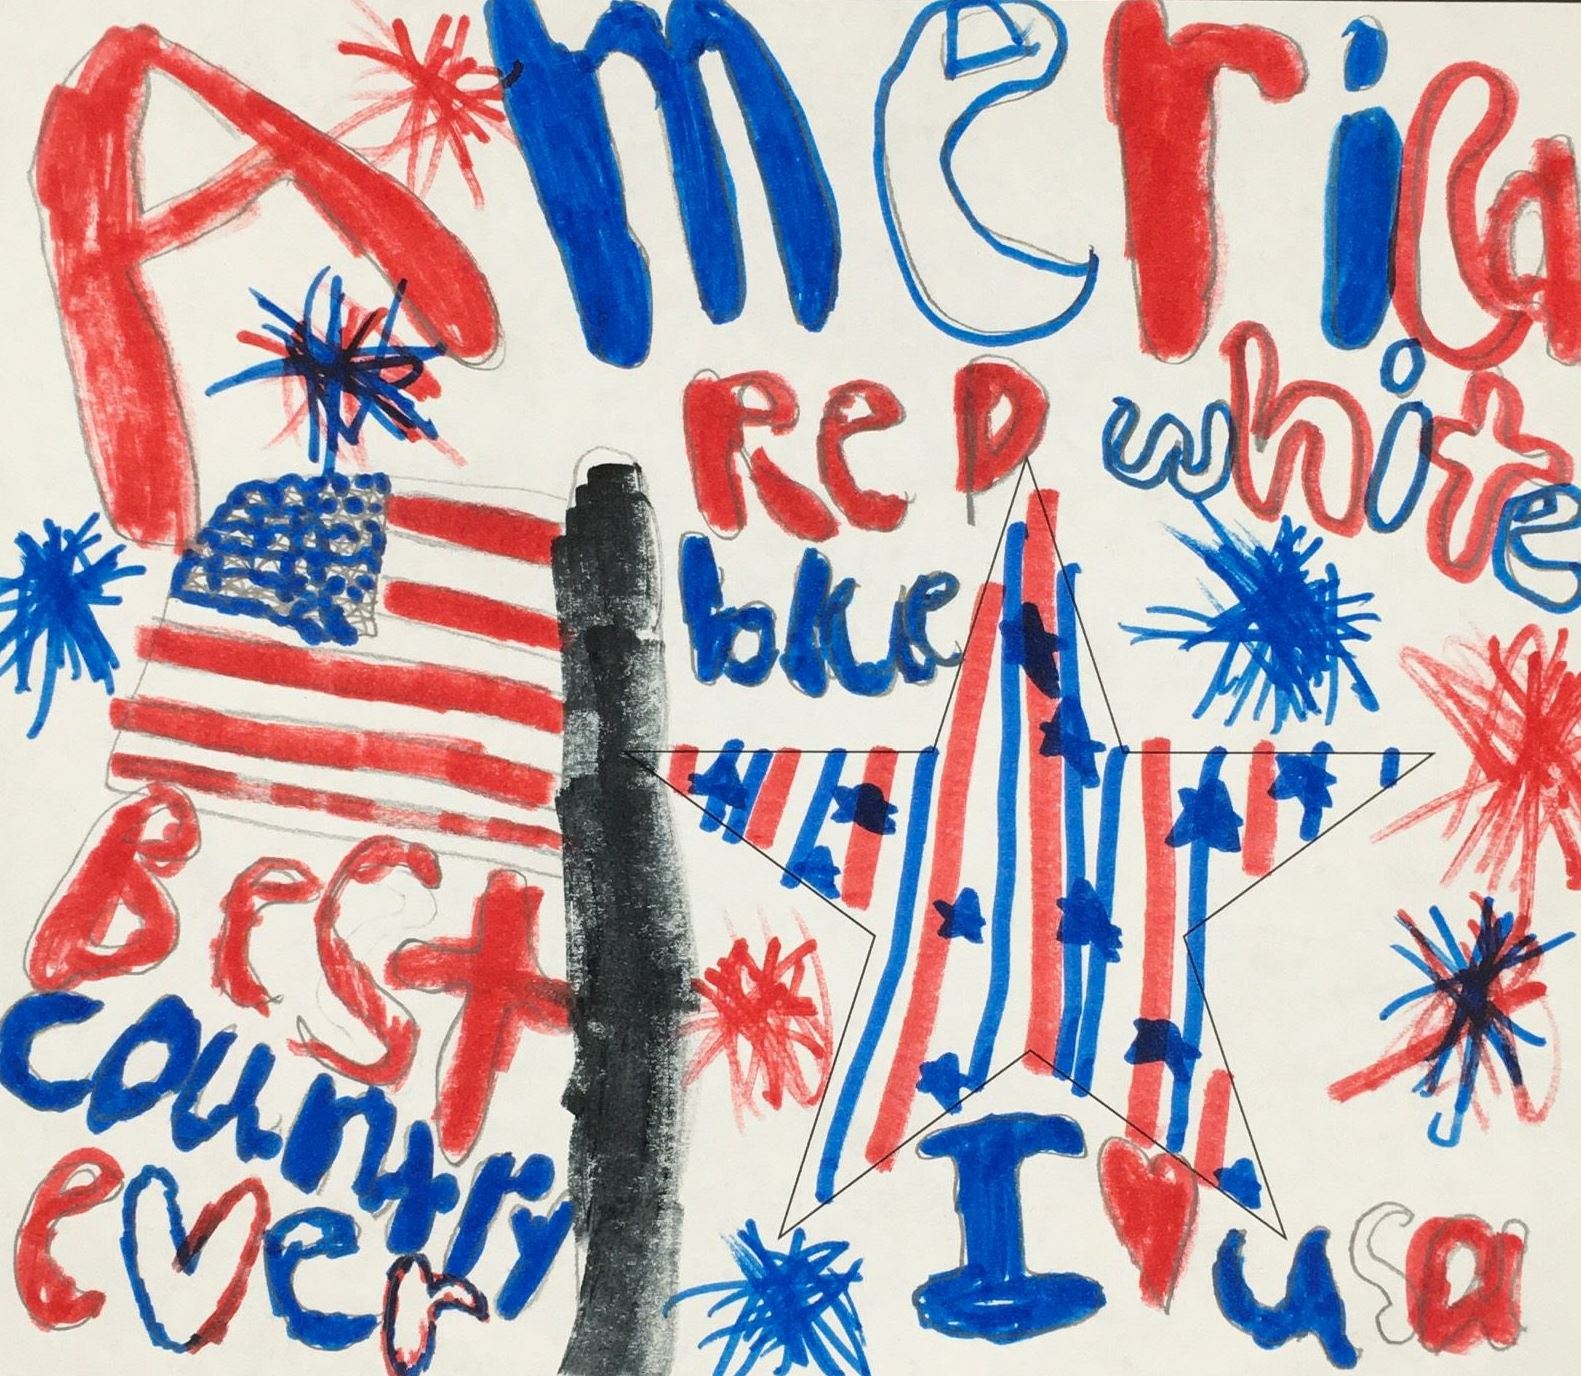 America
Red white
blue
Best
country
ever
I ❤ usa